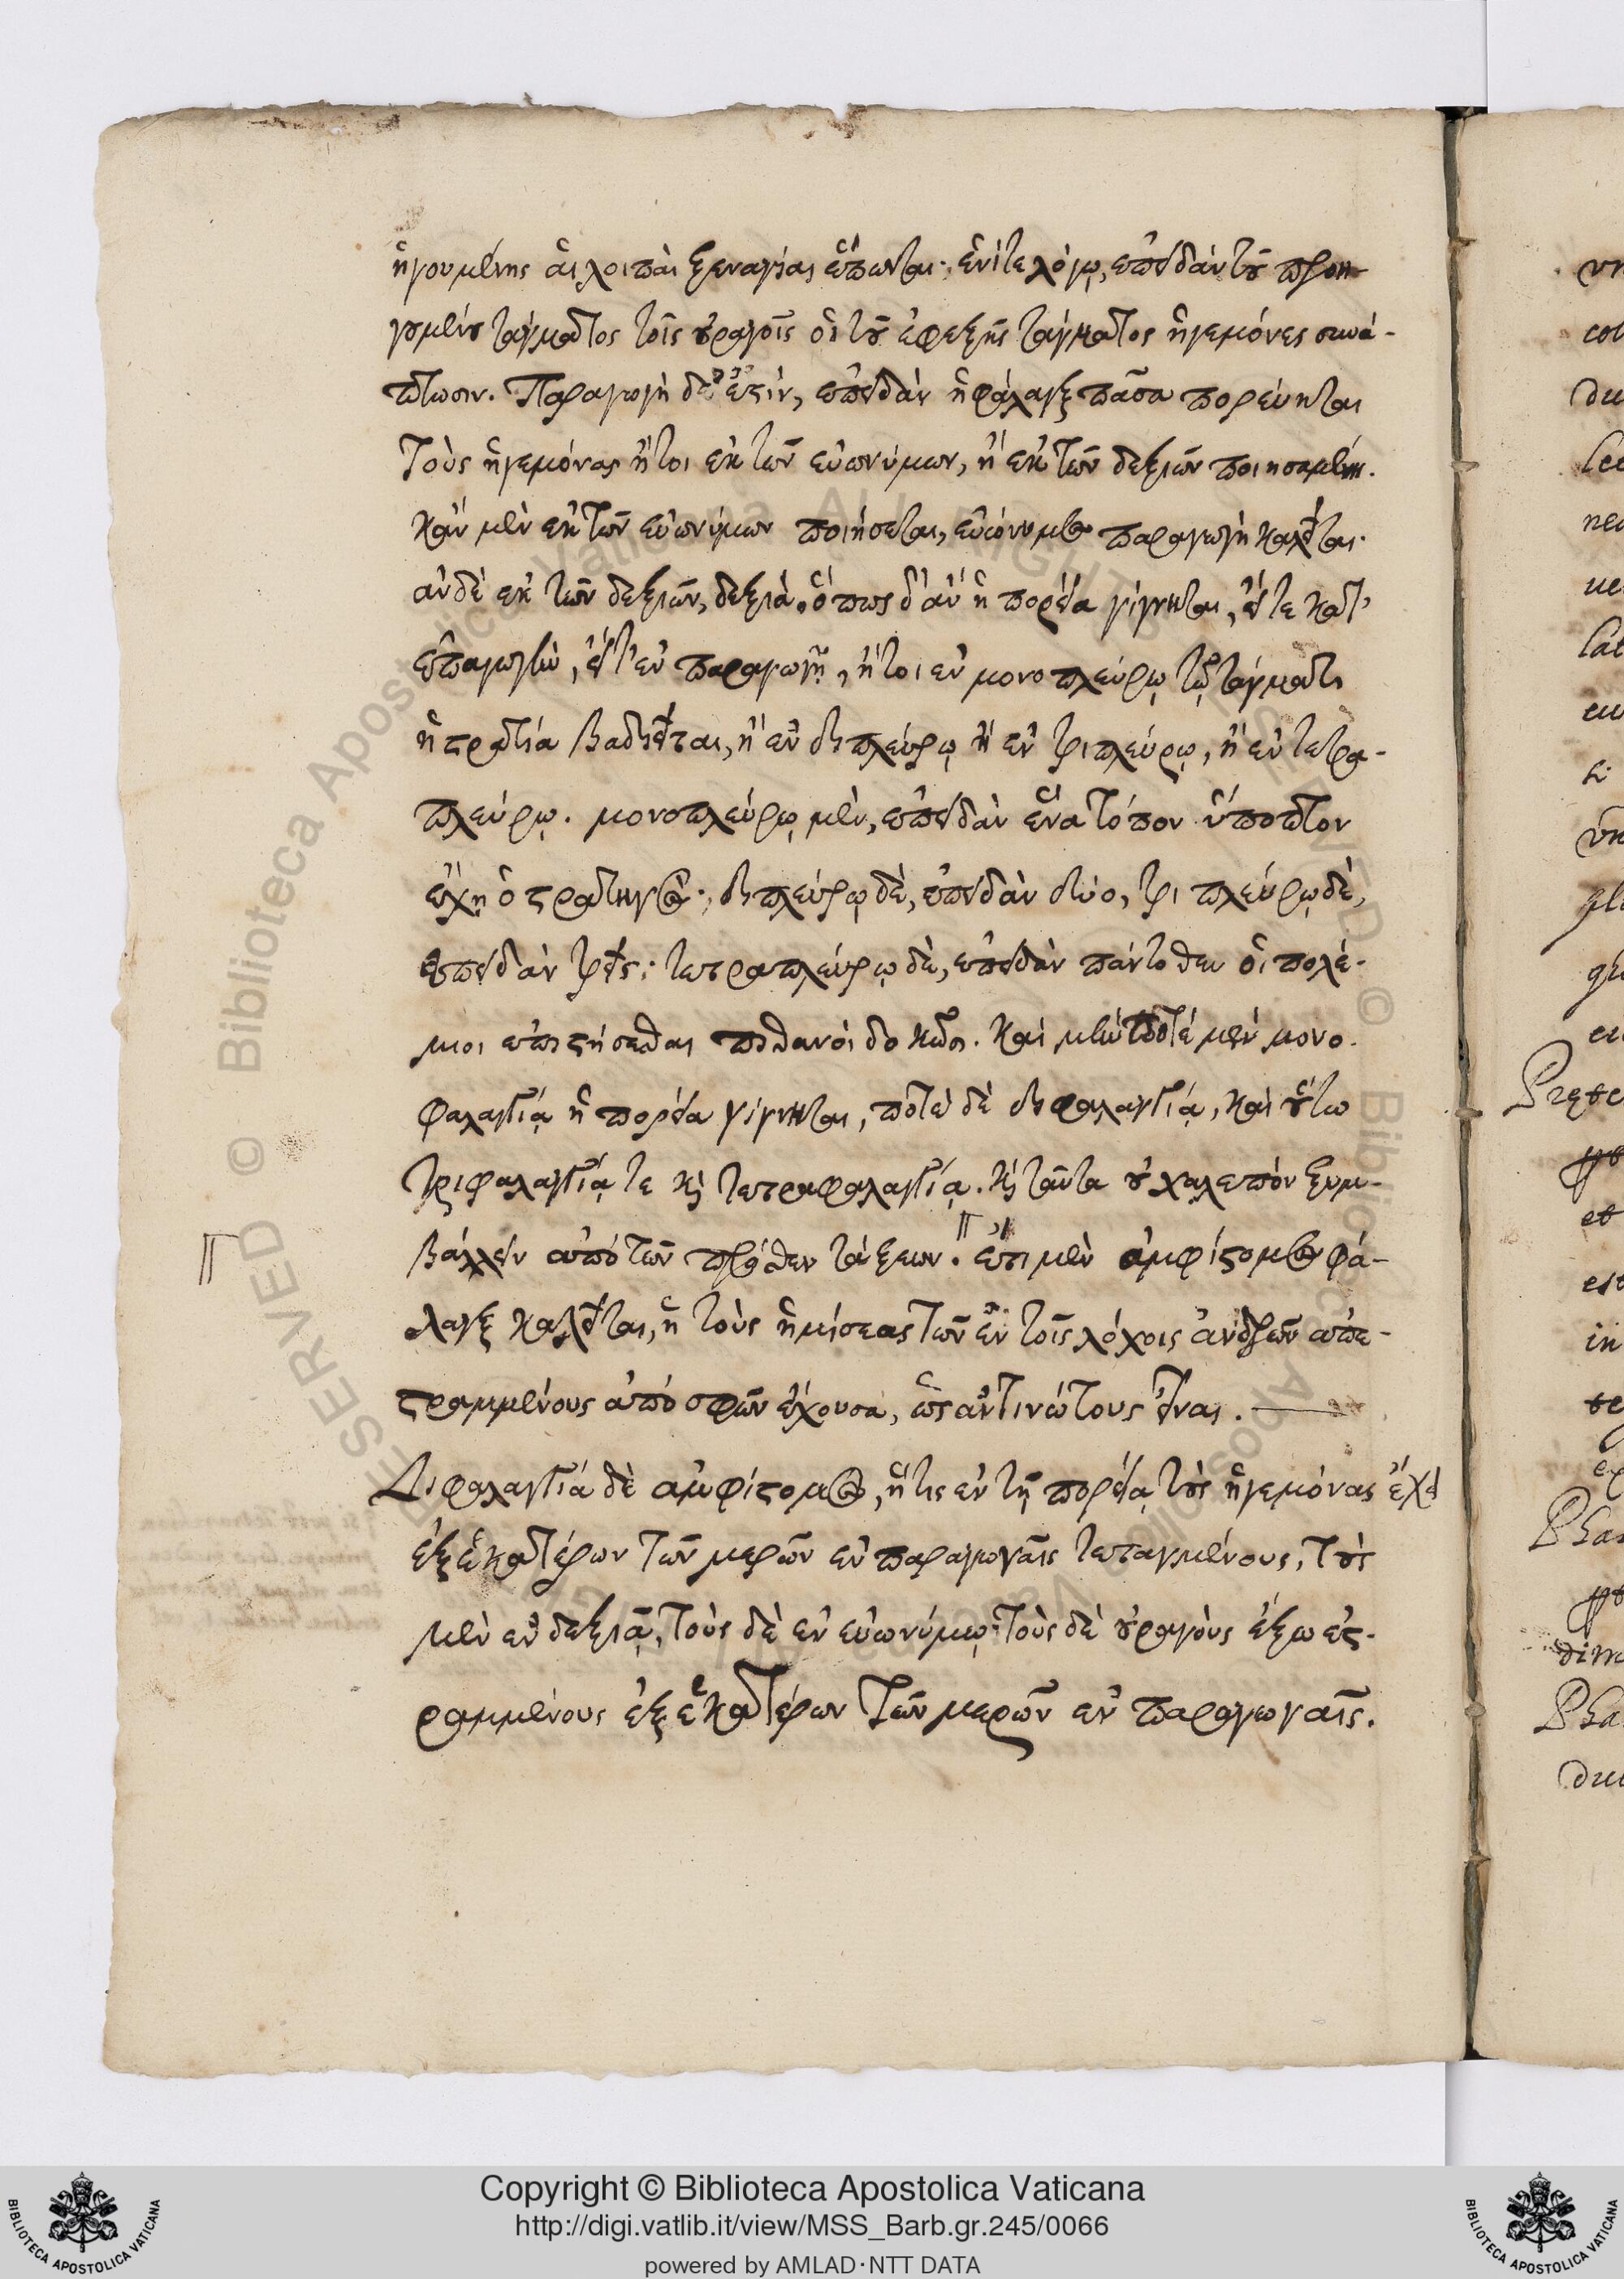 ἡγουμένης αἱ λοιπαὶ ξεναγίαι ἕπωνται· ἑνί τε λόγῳ, ἐπειδὰν τοῦ προη-
γουμένου τάγματος τοῖς οὐραγοῖς οἱ τοῦ ἐφεξῆς τάγματος ἡγεμόνες συνά-
πτωσιν. Παραγωγὴ δέ ἐστιν, ἐπειδὰν ἡ φάλαγξ πᾶσα πορεύηται
τοὺς ἡγεμόνας ἤτοι ἐκ τῶν εὐωνύμων, ἢ ἐκ τῶν δεξιῶν ποιησαμένη.
κἂν μὲν ἐκ τῶν εὐωνύμων ποιήσεται, εὐώνυμος παραγωγὴ καλεῖται·
ἂν δὲ ἐκ τῶν δεξιῶν, δεξιά. ὅπως δ' ἂν ἡ πορεία γίγνηται, εἴτε κατ'
ἐπαγωγὴν, εἴτ' ἐν παραγωγῇ, ἤτοι ἐν μονοπλεύρῳ τῷ τάγματι
ἡ στρατιά βαδιεῖται, ἢ ἐν διπλεύρῳ ἢ ἐν τριπλεύρῳ, ἢ ἐν τετρα-
πλεύρῳ. μονοπλεύρῳ μὲν, ἐπειδὰν ἕνα τόπον ὕποπτον
ἔχῃ ὁ στρατηγὸς· διπλεύρῳ δὲ, ἐπειδὰν δύο, τριπλεύρῳ δὲ,
ἐπειδὰν τρεῖς· τετραπλεύρῳ δὲ, ἐπειδὰν πάντοθεν οἱ πολέ-
μιοι ἐπιστήσεσθαι πιθανοὶ δοκῶσι. καὶ μὲν ποτέ μὲν μονο-
φαλαγγίᾳ ἡ πορεία γίγνηται, ποτὲ δὲ διφαλαγγίᾳ, καὶ οὕτω
τριφαλαγγίᾳ τε καὶ τετραφαλαγγίᾳ. καὶ ταῦτα οὐ χαλεπὸν ξυμ-
βάλλειν ἀπὸ τῶν πρόσθεν τάξεων. ἔτι μὲν ἀμφίστομος φά-
λαγξ καλεῖται, ἡ τοὺς ἡμίσεας τῶν ἐν τοῖς λόχοις ἀνδρῶν ἀπε-
στραμμένους ἀπὸ σφῶν ἔχουσα, ὡς ἀντινώτους εἶναι.
Διφαλαγγία δὲ ἀμφίστομος, ἥτις ἐν τῇ πορείᾳ τοὺς ἡγεμόνας ἔχει
ἐξ ἑκατέρων τῶν μερῶν ἐν παραγωγαῖς τεταγμένους, τοὺς
μὲν ἐν δεξιᾷ, τοὺς δὲ ἐν εὐωνύμῳ· τοὺς δὲ οὐραγοὺς ἔξω ἐστ-
ραμμένους ἐξ ἑκατέρων τῶν μερῶν ἐν παραγωγαῖς.
Copyright © Biblioteca Apostolica Vaticana
http://digi.vatlib.it/view/MSS_Barb.gr.245/0066
powered by AMLAD·NTT DATA